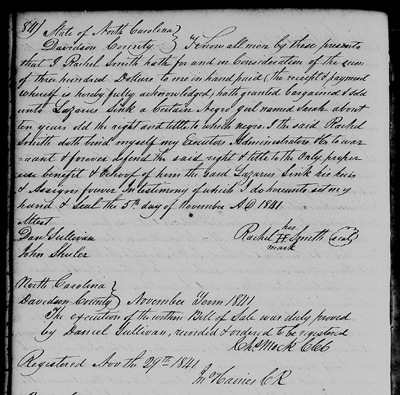 841 State of North Carolina }
Davidson County } Know all men by these presents
that I Rachel Smith hath for and in Consideration of the sum
of three hundred Dollars to me in hand paid the receipt & payment
whereof is hereby fully acknowledged, hath granted bargained & sold
unto Lazarus Sink a Certain Negro girl named Sarah about
ten years old the right and title to which negro I the said Rachel
Smith doth bind myself my Executors Administrators &c to war
rant & forever defend the said right & title to the only proper
use benefit & behoof of him the said Lazarus Sink his heirs
& Assigns forever In testimony of which I do hereunto set my
hand & Seal the 5th day of November AD 1841
Attest
Danl Sullivan
John Shuler
her
Rachel Smith (seal)
mark
North Carolina }
Davidson County } November Term 1841
The execution of the within Bill of Sale was duly proved
by Daniel Sullivan, recorded & ordered to be registered
Chs Mock CCC
Registered Nov the 29th 1841
Jno Haines CR